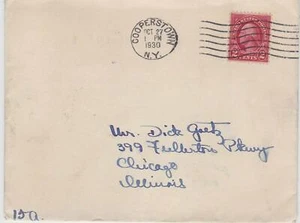 COOPERSTOWN
OCT 27
1 PM
1930
N.Y.
Mr. Dick Goetz
399 Fullerton Pkwy
Chicago
Illinois